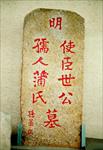 明
使臣世公
孺人蒲氏
墓